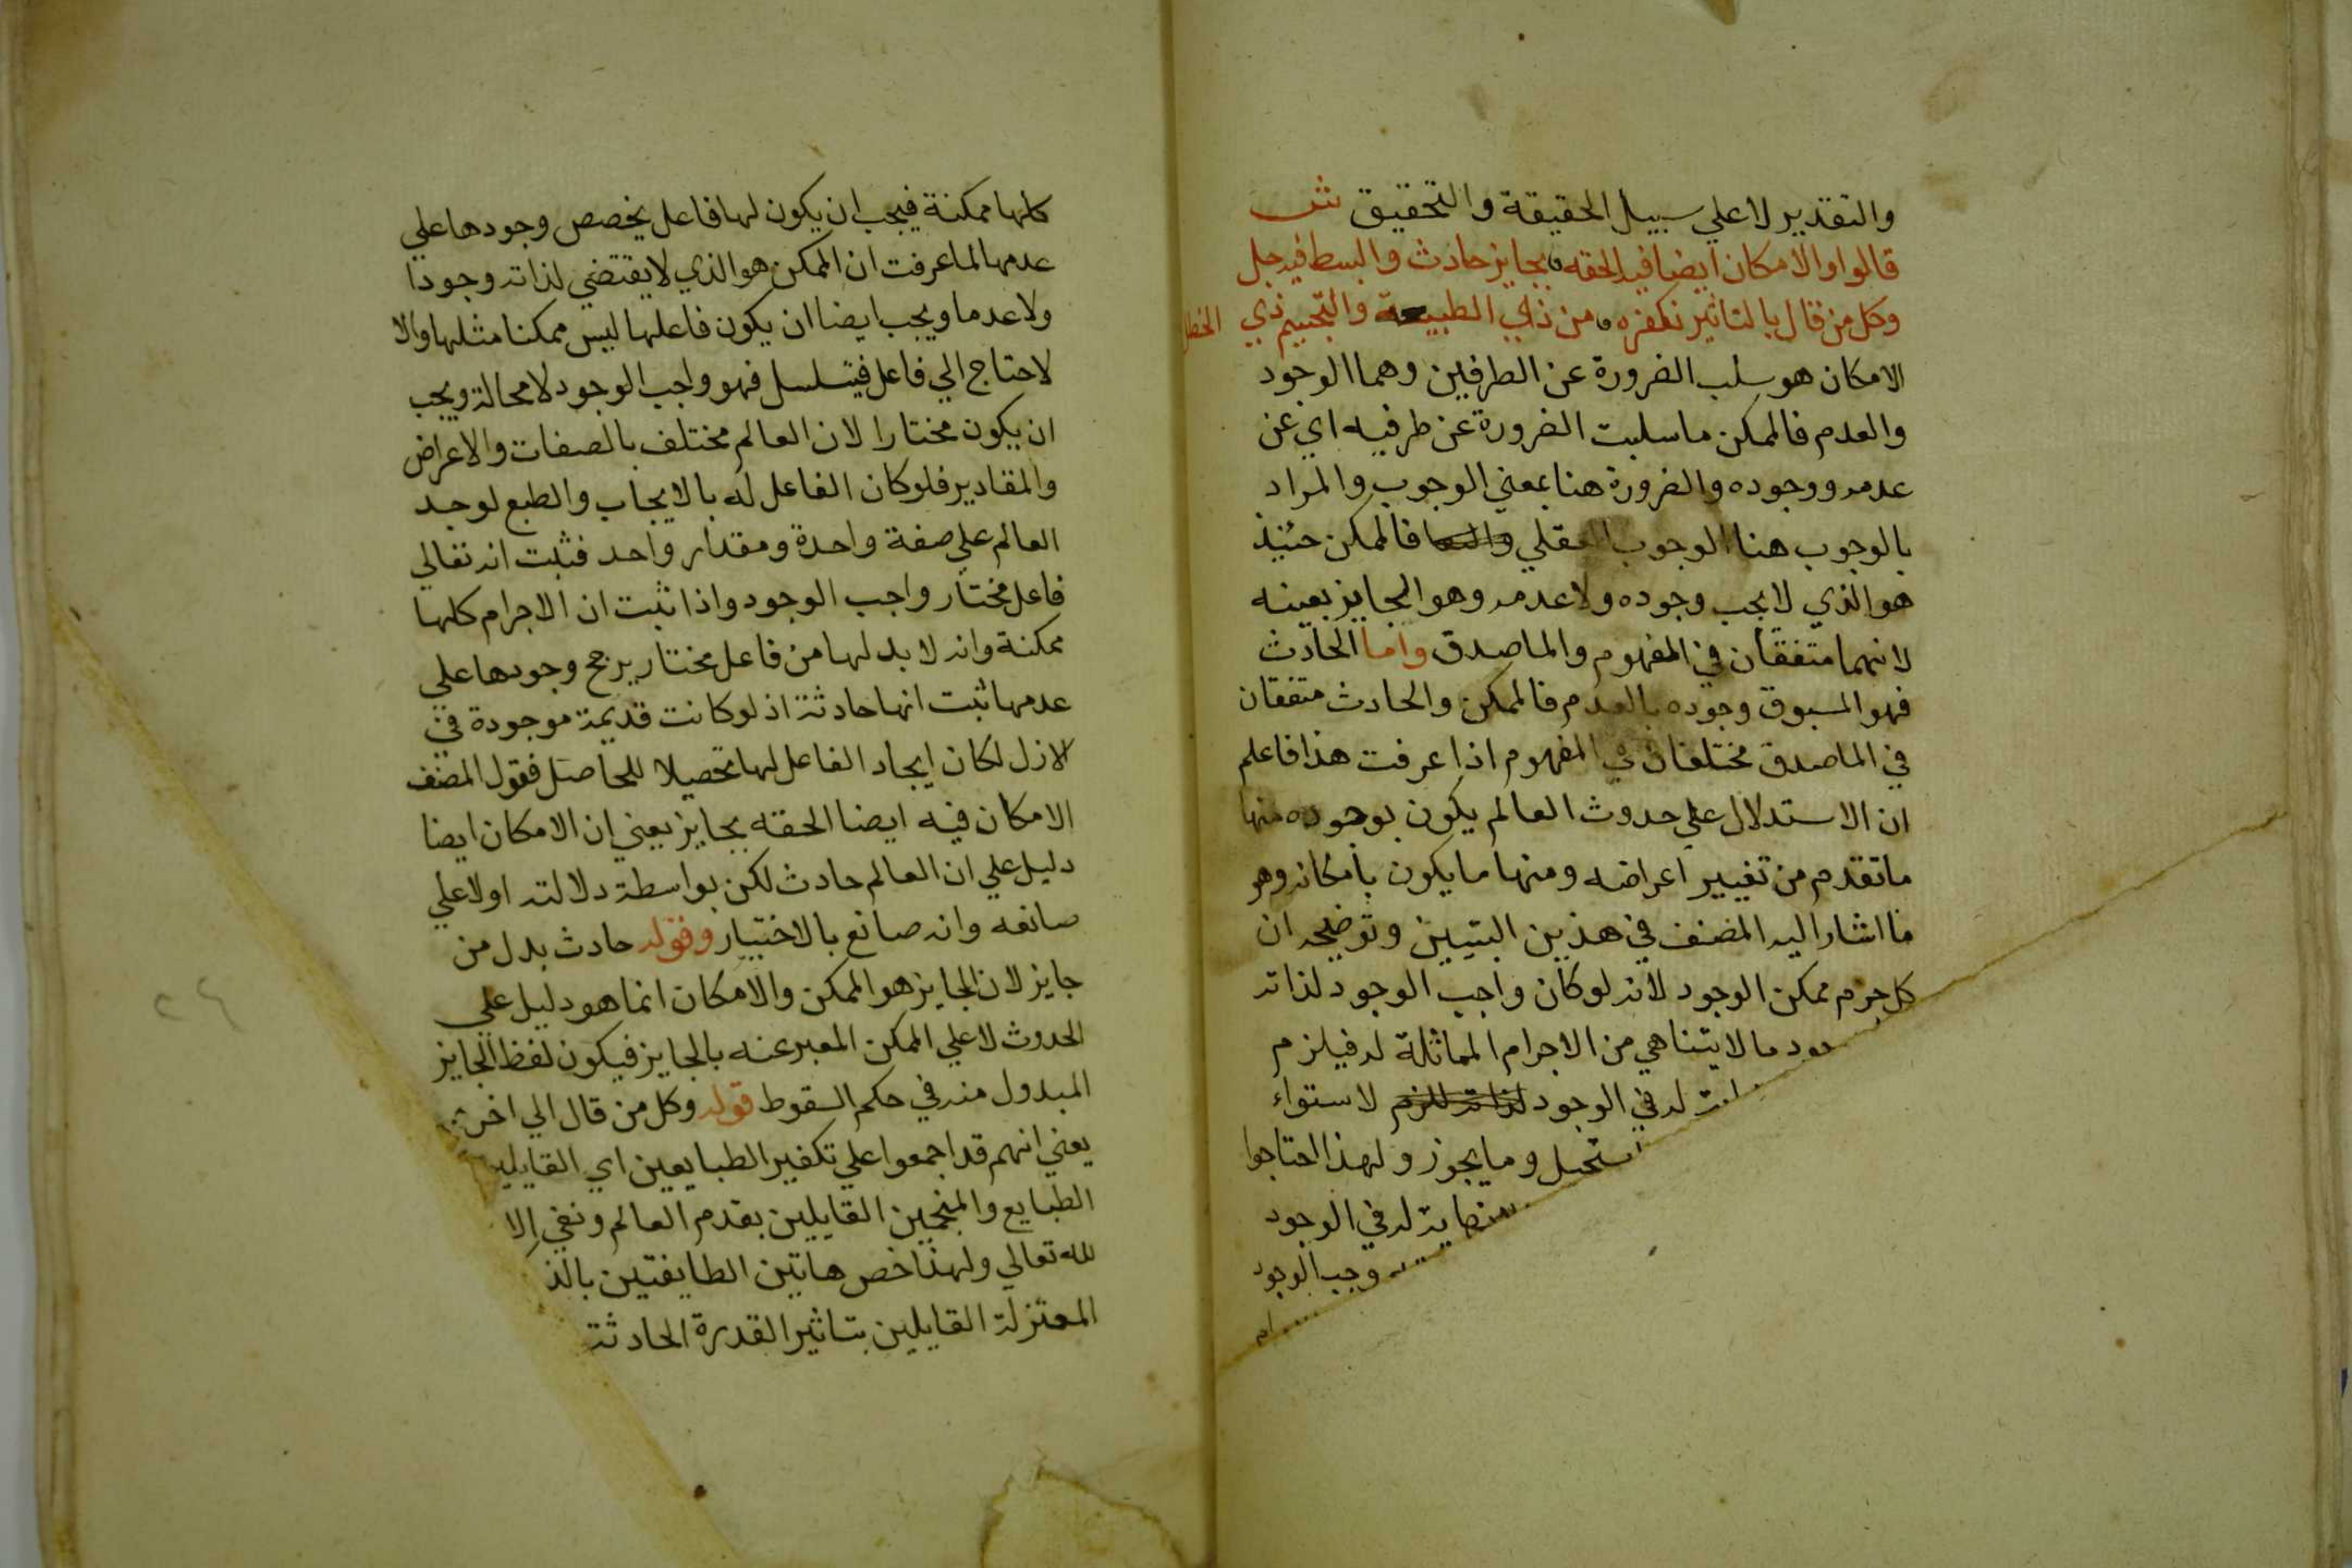 والتقدير لا علي سبيل الحقيقة والتحقيق ش
قالوا والامكان ايضا فيه الحقه بجايز حادث والبسط فيه جل
وكل من قال بالتاثير نكفره من ذي الطبيعة والتنجيم ذي الخطل
الامكان هو سلب الضرورة عن الطرفين وهما الوجود
والعدم فالممكن ما سلبت الضرورة عن طرفيه اي عن
عدمه ووجوده والضرورة هنا بمعني الوجوب والمراد
بالوجوب هنا الوجوب العقلي فالممكن حينئذ
هو الذي لا يجب وجوده ولا عدمه وهو الجايز بعينه
لانهما متفقان في المفهوم والماصدق واما الحادث
فهو المسبوق وجوده بالعدم فالممكن والحادث متفقان
في الماصدق مختلفان في المفهوم اذا عرفت هذا فاعلم
ان الاستدلال علي حدوث العالم يكون بوجوه منها
ما تقدم من تغيير اعراضه ومنها ما يكون بامكانه وهو
ما اشار اليه المصنف في هذين البيتين وتوضيحه ان
كل جرم ممكن الوجود لانه لو كان واجب الوجود لذاته
ما لا يتناهي من الاجرام المماثلة له فيلزم
له في الوجود لاستواء
وما يجوز ولهذا احتاجوا
له في الوجود
وجب الوجود
كلها ممكنة فيجب ان يكون لها فاعل يخصص وجودها علي
عدمها لما عرفت ان الممكن هو الذي لا يقتضي لذاته وجودا
ولا عدما ويجب ايضا ان يكون فاعلها ليس ممكنا مثلها والا
لاحتاج الي فاعل فيتسلسل فهو واجب الوجود لا محالة ويجب
ان يكون مختارا لان العالم مختلف بالصفات والاعراض
والمقادير فلو كان الفاعل له بالايجاب والطبع لوجد
العالم علي صفة واحدة ومقدار واحد فثبت انه تعالي
فاعل مختار واجب الوجود واذا ثبت ان الاجرام كلها
ممكنة وانه لا بد لها من فاعل مختار يرجح وجودها علي
عدمها ثبت انها حادثة اذ لو كانت قديمة موجودة في
الازل لكان ايجاد الفاعل لها تحصيلا للحاصل فقول المصنف
الامكان فيه ايضا الحقه بجايز يعني ان الامكان ايضا
دليل علي ان العالم حادث لكن بواسطة دلالته اولا علي
صانعه وانه صانع بالاختيار وقوله حادث بدل من
جايز لان الجايز هو الممكن والامكان انما هو دليل علي
الحدوث لا علي الممكن المعبر عنه بالجايز فيكون لفظ الجايز
المبدول منه في حكم السقوط قوله وكل من قال الي اخره
يعني انهم قد اجمعوا علي تكفير الطبايعين اي القايلين
الطبايع والمنجمين القايلين بقدم العالم ونفي الا
لله تعالي ولهذا خص هاتين الطايفتين بالذ
المعتزلة القايلين بتاثير القدرة الحادثة